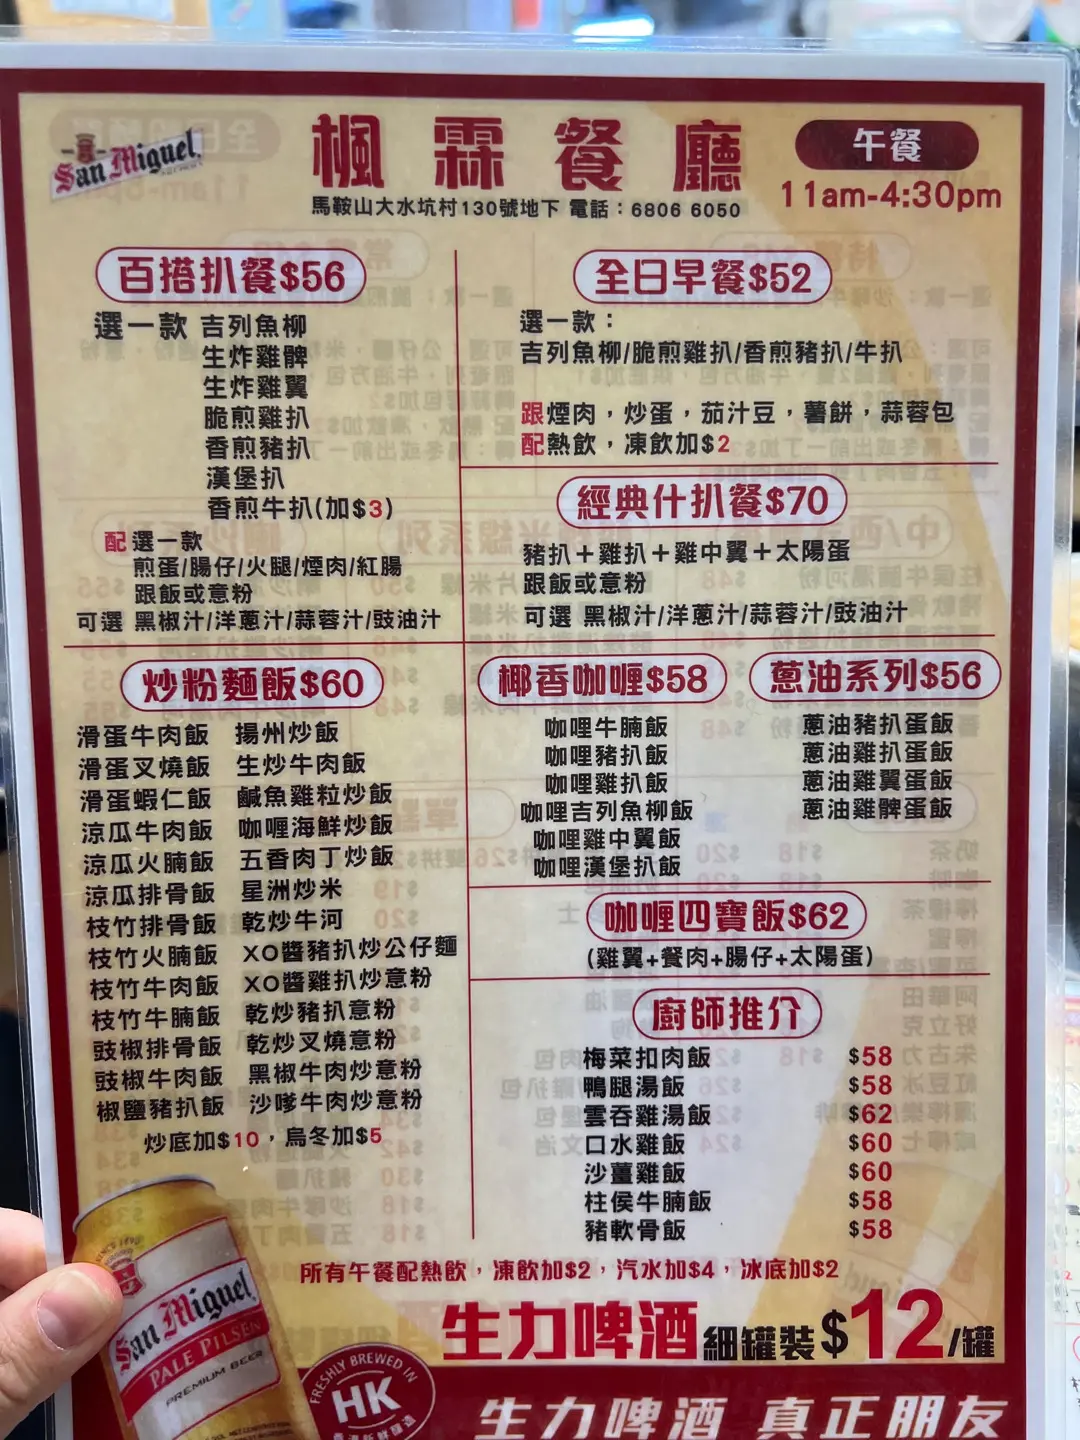 San Miguel
楓霖餐廳
午餐
11am-4:30pm
馬鞍山大水坑村130號地下 電話：6806 6050
百搭扒餐$56
選一款 吉列魚柳
生炸雞髀
生炸雞翼
脆煎雞扒
香煎豬扒
漢堡扒
香煎牛扒(加$3)
配選一款
煎蛋/腸仔/火腿/煙肉/紅腸
跟飯或意粉
可選 黑椒汁/洋蔥汁/蒜蓉汁/豉油汁
全日早餐$52
選一款：
吉列魚柳/脆煎雞扒/香煎豬扒/牛扒
跟煙肉，炒蛋，茄汁豆，薯餅，蒜蓉包
配熱飲，凍飲加$2
經典什扒餐$70
豬扒＋雞扒＋雞中翼＋太陽蛋
跟飯或意粉
可選 黑椒汁/洋蔥汁/蒜蓉汁/豉油汁
炒粉麵飯$60
滑蛋牛肉飯 揚州炒飯
滑蛋叉燒飯 生炒牛肉飯
滑蛋蝦仁飯 鹹魚雞粒炒飯
涼瓜牛肉飯 咖喱海鮮炒飯
涼瓜火腩飯 五香肉丁炒飯
涼瓜排骨飯 星洲炒米
枝竹排骨飯 乾炒牛河
枝竹火腩飯 XO醬豬扒炒公仔麵
枝竹牛肉飯 XO醬雞扒炒意粉
枝竹牛腩飯 乾炒豬扒意粉
豉椒排骨飯 乾炒叉燒意粉
豉椒牛肉飯 黑椒牛肉炒意粉
椒鹽豬扒飯 沙嗲牛肉炒意粉
炒底加$10，烏冬加$5
椰香咖喱$58
咖哩牛腩飯
咖哩豬扒飯
咖哩雞扒飯
咖哩吉列魚柳飯
咖哩雞中翼飯
咖哩漢堡扒飯
蔥油系列$56
蔥油豬扒蛋飯
蔥油雞扒蛋飯
蔥油雞翼蛋飯
蔥油雞髀蛋飯
咖喱四寶飯$62
(雞翼+餐肉+腸仔+太陽蛋)
廚師推介
梅菜扣肉飯 $58
鴨腿湯飯 $58
雲吞雞湯飯 $62
口水雞飯 $60
沙薑雞飯 $60
柱侯牛腩飯 $58
豬軟骨飯 $58
所有午餐配熱飲，凍飲加$2，汽水加$4，冰底加$2
生力啤酒 細罐裝 $12/罐
San Miguel
PALE PILSEN
PREMIUM BEER
FRESHLY BREWED IN
HK
生力啤酒 真正朋友